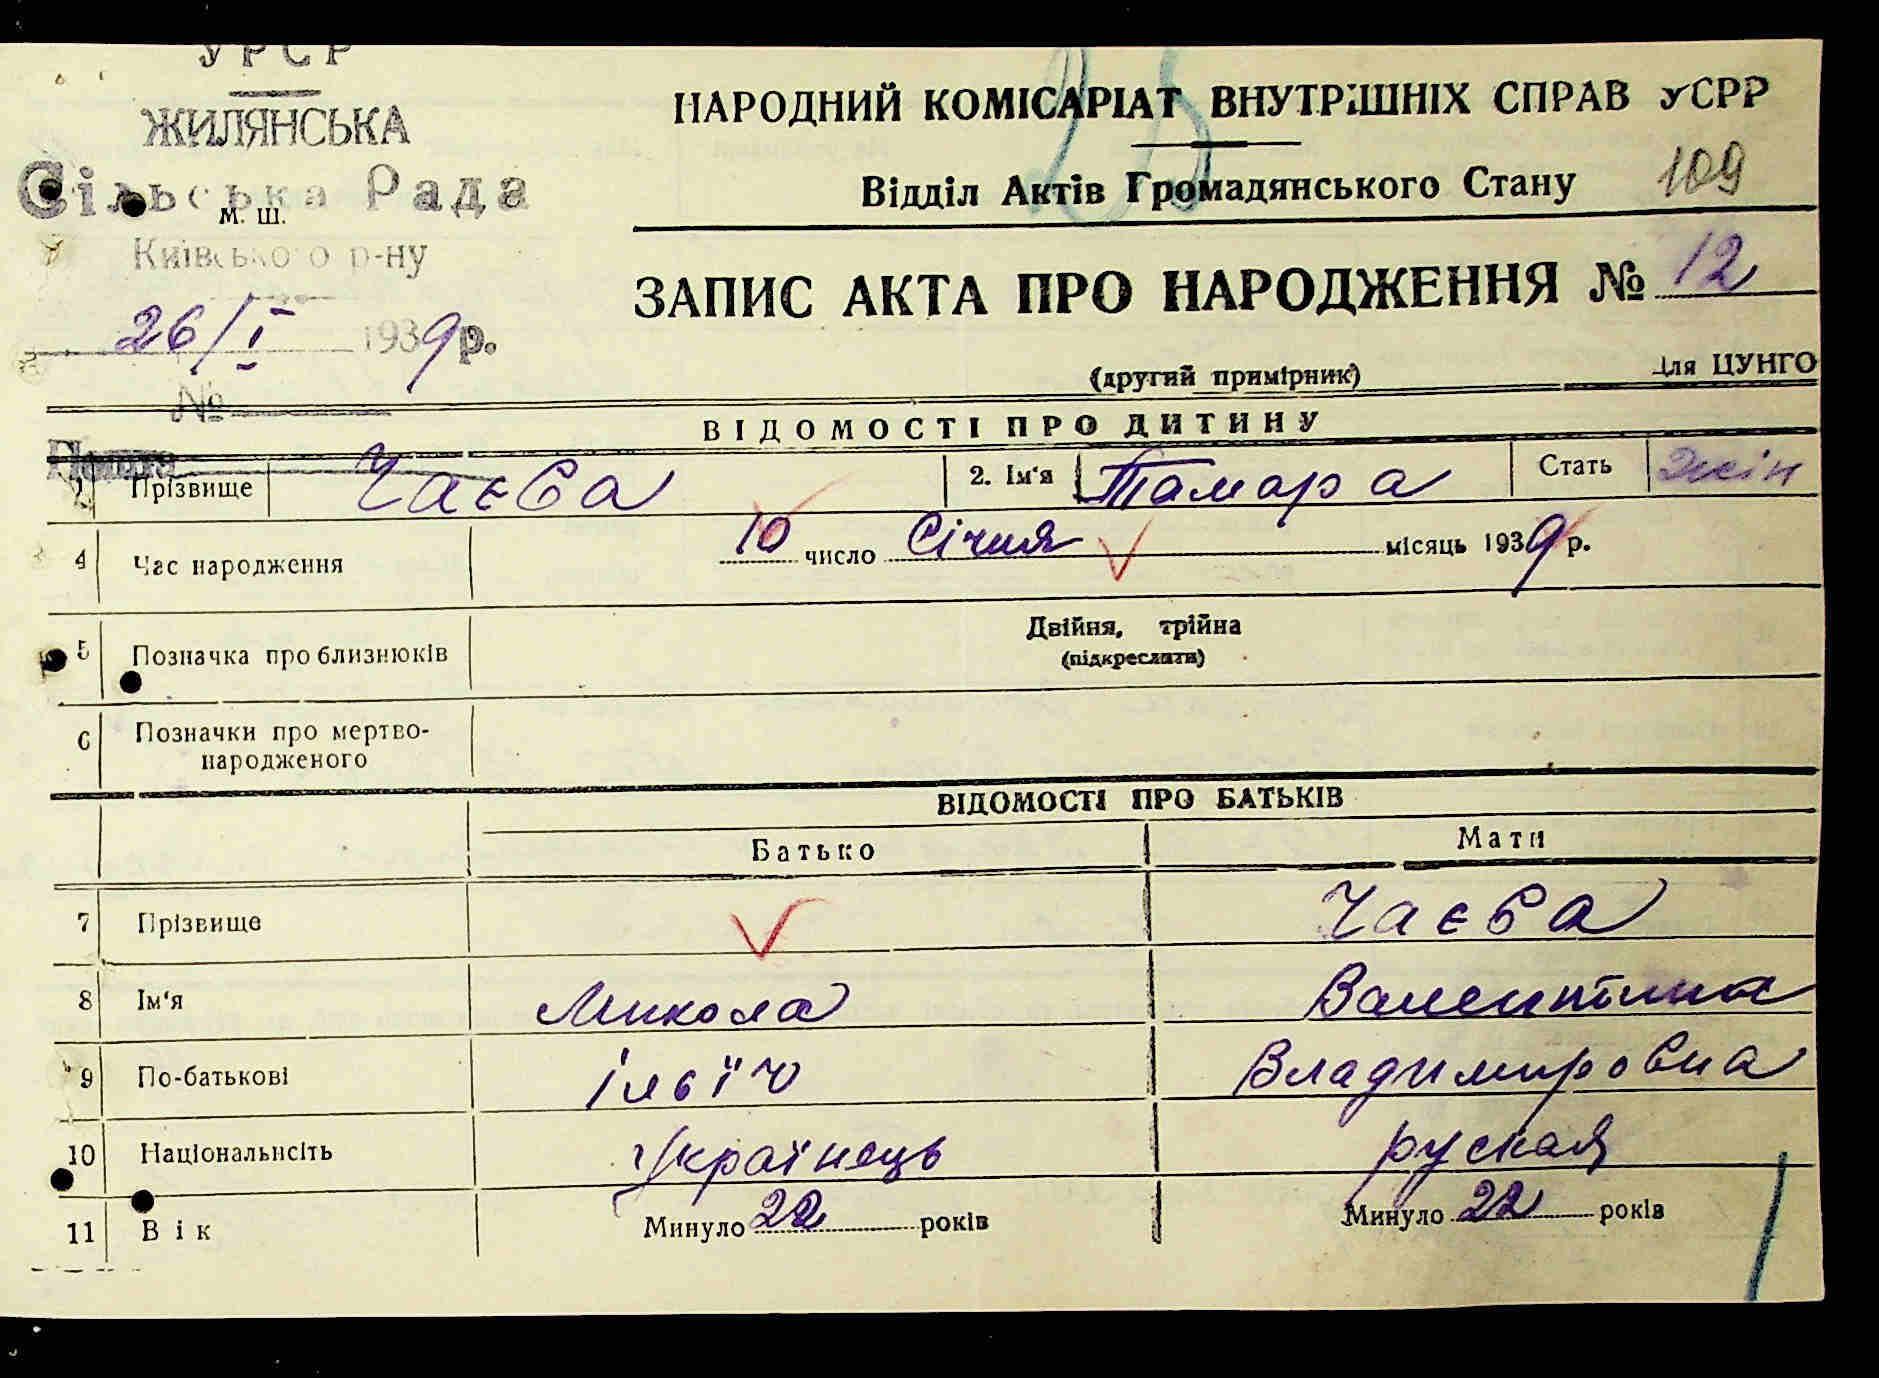 УРСР
ЖИЛЯНСЬКА
Сільська Рада
м. ш.
Київського р-ну
26/I 1939 р.
№
25
НАРОДНИЙ КОМІСАРІАТ ВНУТРІШНІХ СПРАВ УСРР
Відділ Актів Громадянського Стану 109
ЗАПИС АКТА ПРО НАРОДЖЕННЯ № 12
(другий примірник) Для ЦУНГО
ВІДОМОСТІ ПРО ДИТИНУ
1 Прізвище Чаєва 2. Ім'я Тамара Стать жін
4 Час народження 10 число Січня місяць 1939 р.
5 Позначка про близнюків Двійня, трійна
(підкреслити)
6 Позначки про мертво-
народженого
ВІДОМОСТІ ПРО БАТЬКІВ
Батько Мати
7 Прізвище Чаєва
8 Ім'я Микола Валентіна
9 По-батькові Ільїч Владимировна
10 Національність Українець руская
11 Вік Минуло 22 років Минуло 22 років